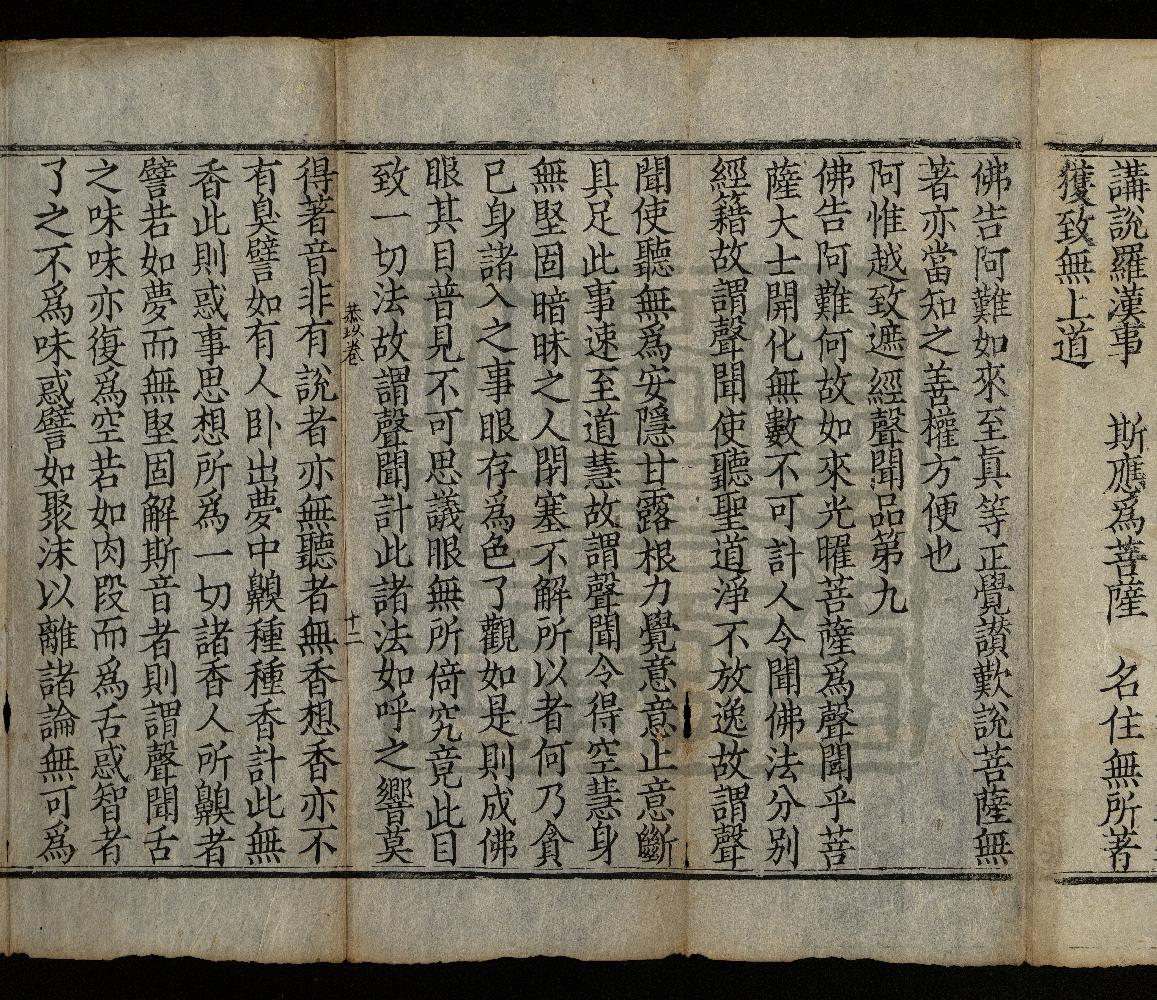 講說羅漢事　斯應爲菩薩　名住無所著
獲致無上道
佛告阿難如來至眞等正覺讃歎說菩薩無
著亦當知之善權方便也
阿惟越致遮經聲聞品第九
佛告阿難何故如來光曜菩薩爲聲聞乎菩
薩大士開化無數不可計人令聞佛法分別
經籍故謂聲聞使聽聖道淨不放逸故謂聲
聞使聽無爲安隱甘露根力覺意意止意斷
具足此事速至道慧故謂聲聞令得空慧身
無堅固暗昧之人閉塞不解所以者何乃貪
已身諸入之事眼存爲色了觀如是則成佛
眼其目普見不可思議眼無所倚究竟此目
致一切法故謂聲聞計此諸法如呼之響莫
恭坎卷　十二
得著音非有說者亦無聽者無香想香亦不
有臭譬如有人卧出夢中齅種種香計此無
香此則惑事思想所爲一切諸香人所齅者
譬若如夢而無堅固解斯音者則謂聲聞舌
之味味亦復爲空若如肉段而爲舌惑智者
了之不爲味惑譬如聚沫以離諸論無可爲